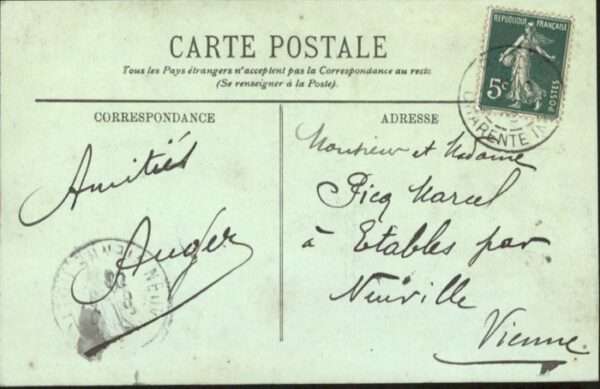 CARTE POSTALE
Tous les Pays étrangers n'acceptent pas la Correspondance au recto
(Se renseigner à la Poste).
REPUBLIQUE FRANÇAISE
5c
POSTES
CHARENTE IN
CORRESPONDANCE
ADRESSE
Amitiés
Auger
Monsieur et Madame
Picq Marcel
à Etables par
Neuville
Vienne.
NEUV